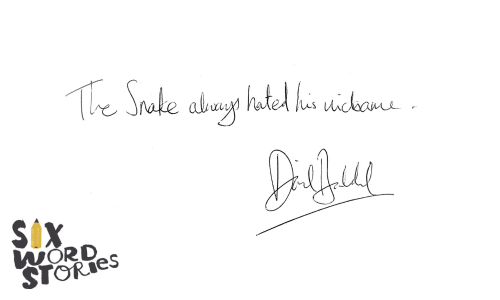 The Snake always hated his nickname.
David Baddiel
SIX
WORD
STORIES